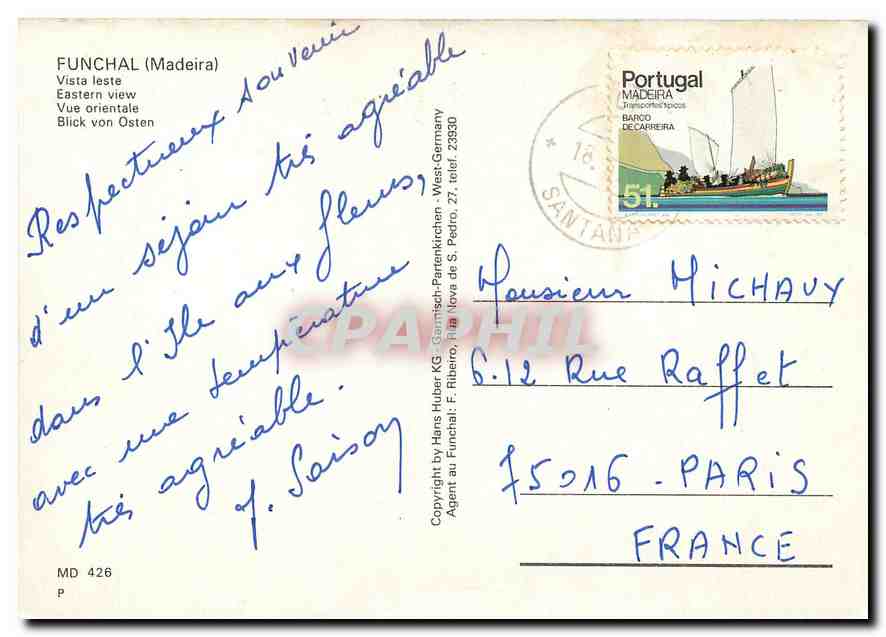 FUNCHAL (Madeira)
Vista leste
Eastern view
Vue orientale
Blick von Osten
Respectueux souvenir
d'un séjour très agréable
dans l'Ile aux fleurs,
avec une température
très agréable.
J. Saison
MD 426
P
Copyright by Hans Huber KG - Garmisch-Partenkirchen - West-Germany
Agent au Funchal: F. Ribeiro, Rua Nova de S. Pedro, 27, telef. 23930
CPAPHIL
Portugal
MADEIRA
Transportes típicos
BARCO
DE CARREIRA
51.
* 18.
SANTANA
Monsieur MICHAUY
6.12 Rue Raffet
75016 - PARIS
FRANCE